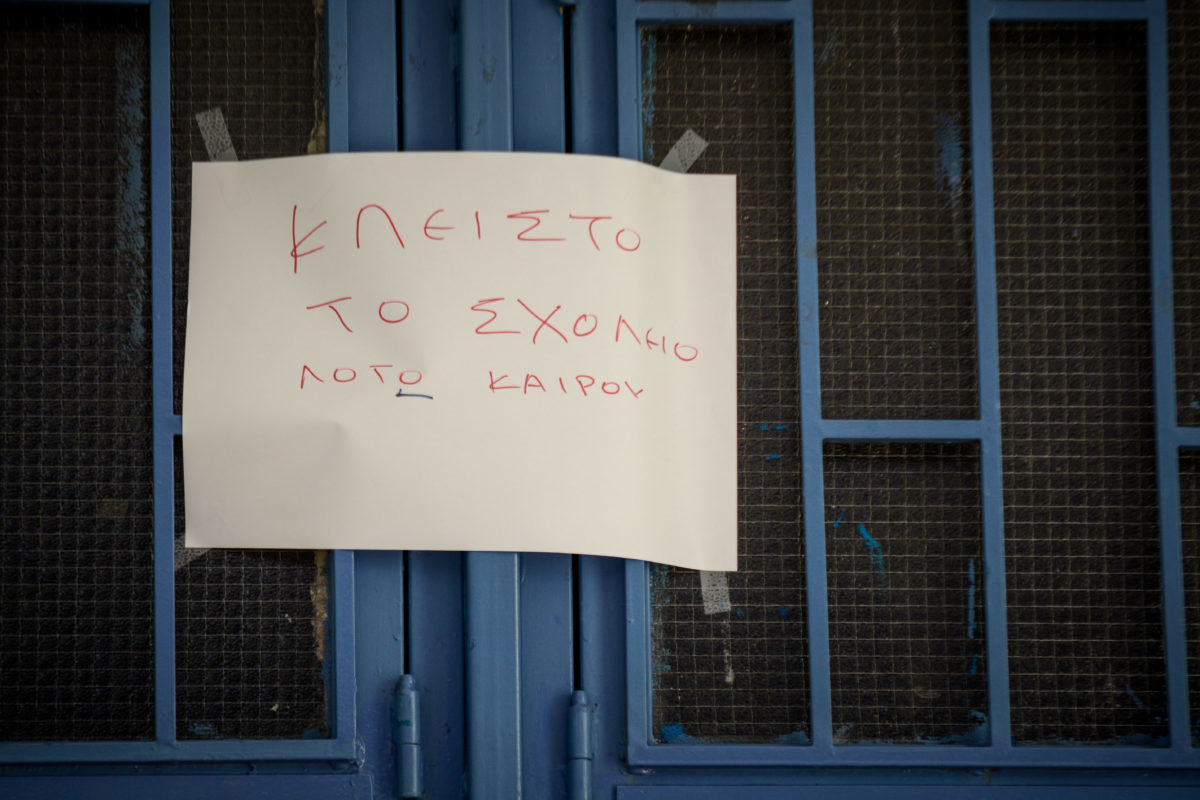 ΚΛΕΙΣΤΟ
ΤΟ ΣΧΟΛΕΙΟ
ΛΟΤΟ ΚΑΙΡΟΥ